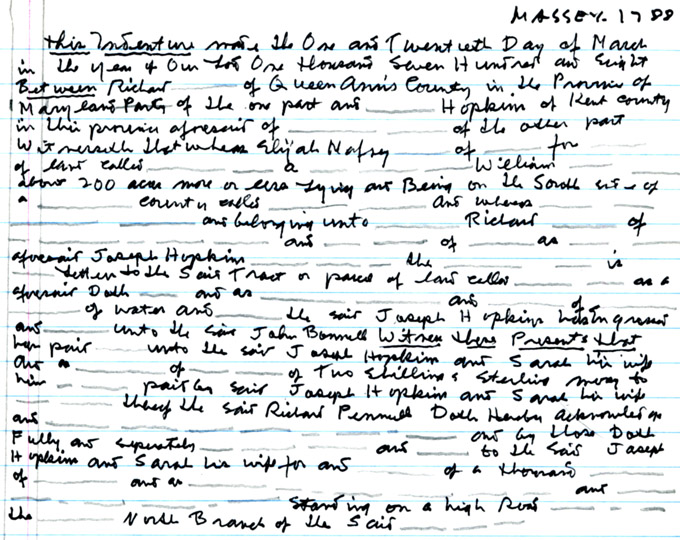 MASSEY. 1788
This Indenture made the One and Twentieth Day of March
in the year of Our Lord One Thousand Seven Hundred and Eight
Between Richard of Queen Ann's County in the Province of
Maryland Party of the one part and Hopkins of Kent County
in this province aforesaid of of the other part
Witnesseth that whereas Elijah Massey of for
of land called a William
about 200 acres more or less Lying and Being on the South side of
a County called And whereas
and belonging unto Richard of
and of as
aforesaid Joseph Hopkins the is
to the Said Tract or parcel of land called as a
aforesaid Doth and as and of
of water and the said Joseph Hopkins has
and unto the said John Witness these Presents that
pair unto the said Joseph Hopkins and Sarah his wife
and as of of Two Shillings Sterling money to
him paid by said Joseph Hopkins and Sarah his wife
thereof the said Richard Pennell Doth Hereby acknowledge
and and by these Doth
Fully and seperately and to the said Joseph
Hopkins and Sarah his wife for and of a thousand
of and as and
Standing on a high Road
the North Branch of the Said